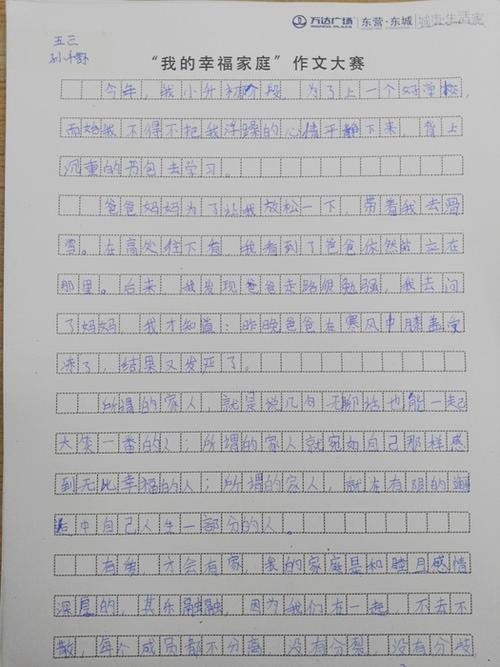 万达广场 东营·东城 城市生活家
五三
孙千野
“我的幸福家庭”作文大赛
今年，我小升初阶段，为了上一个好学校，
而妈我不得不把我浮躁的心情平静下来，背上
沉重的书包去学习。
爸爸妈妈为了让我放松一下，带着我去滑
雪。在高处往下看，我看到了爸爸依然站立在
那里。后来 我发现爸爸走路很勉强，我去问
了妈妈，我才知道：昨晚爸爸在寒风中膝盖受
冻了，结果又发炎了。
所谓的家人，就是说几句无聊话也能一起
大笑一番的人；所谓的家人就宛如自己那样感
到无比幸福的人；所谓的家人，就在有限的
中自己人生一部分的人。
有 才会有家，我的家庭是和睦且感情
深息的，其乐融融，因为我们在一起，不去不
散，每个成员都不分离，没有分裂，没有分歧